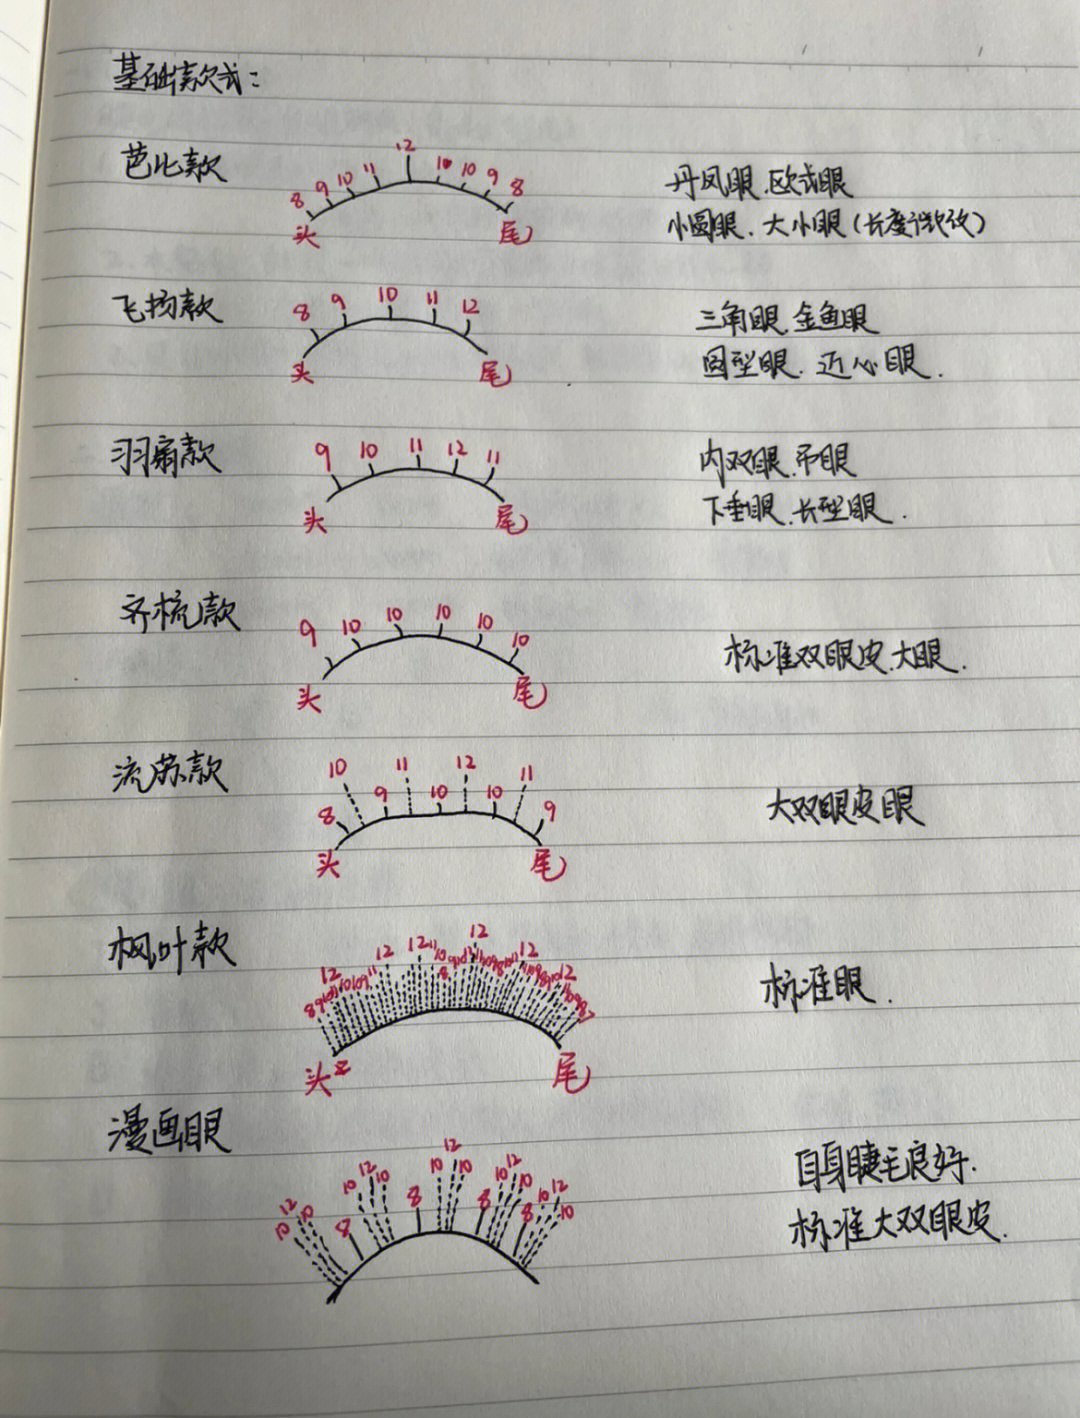 基础款式：
芭比款
8 9 10 11 12 10 10 9 8
头 尾
丹凤眼、欧式眼
小圆眼、大小眼（长度微改）
飞扬款
8 9 10 11 12
头 尾
三角眼、金鱼眼
圆型眼、近心眼.
羽扇款
9 10 11 12 11
头 尾
内双眼、吊眼
下垂眼、长型眼.
齐梳款
9 10 10 10 10 10
头 尾
标准双眼皮、大眼.
流苏款
10 11 12 11
8 9 10 10 9
头 尾
大双眼皮眼
枫叶款
12 12 12 12 12 12
头 尾
标准眼.
漫画眼
10 12 10 8 10 12 10 8 10 12 10 8 10 12 10 8 10 12 10
自身睫毛良好.
标准大双眼皮.